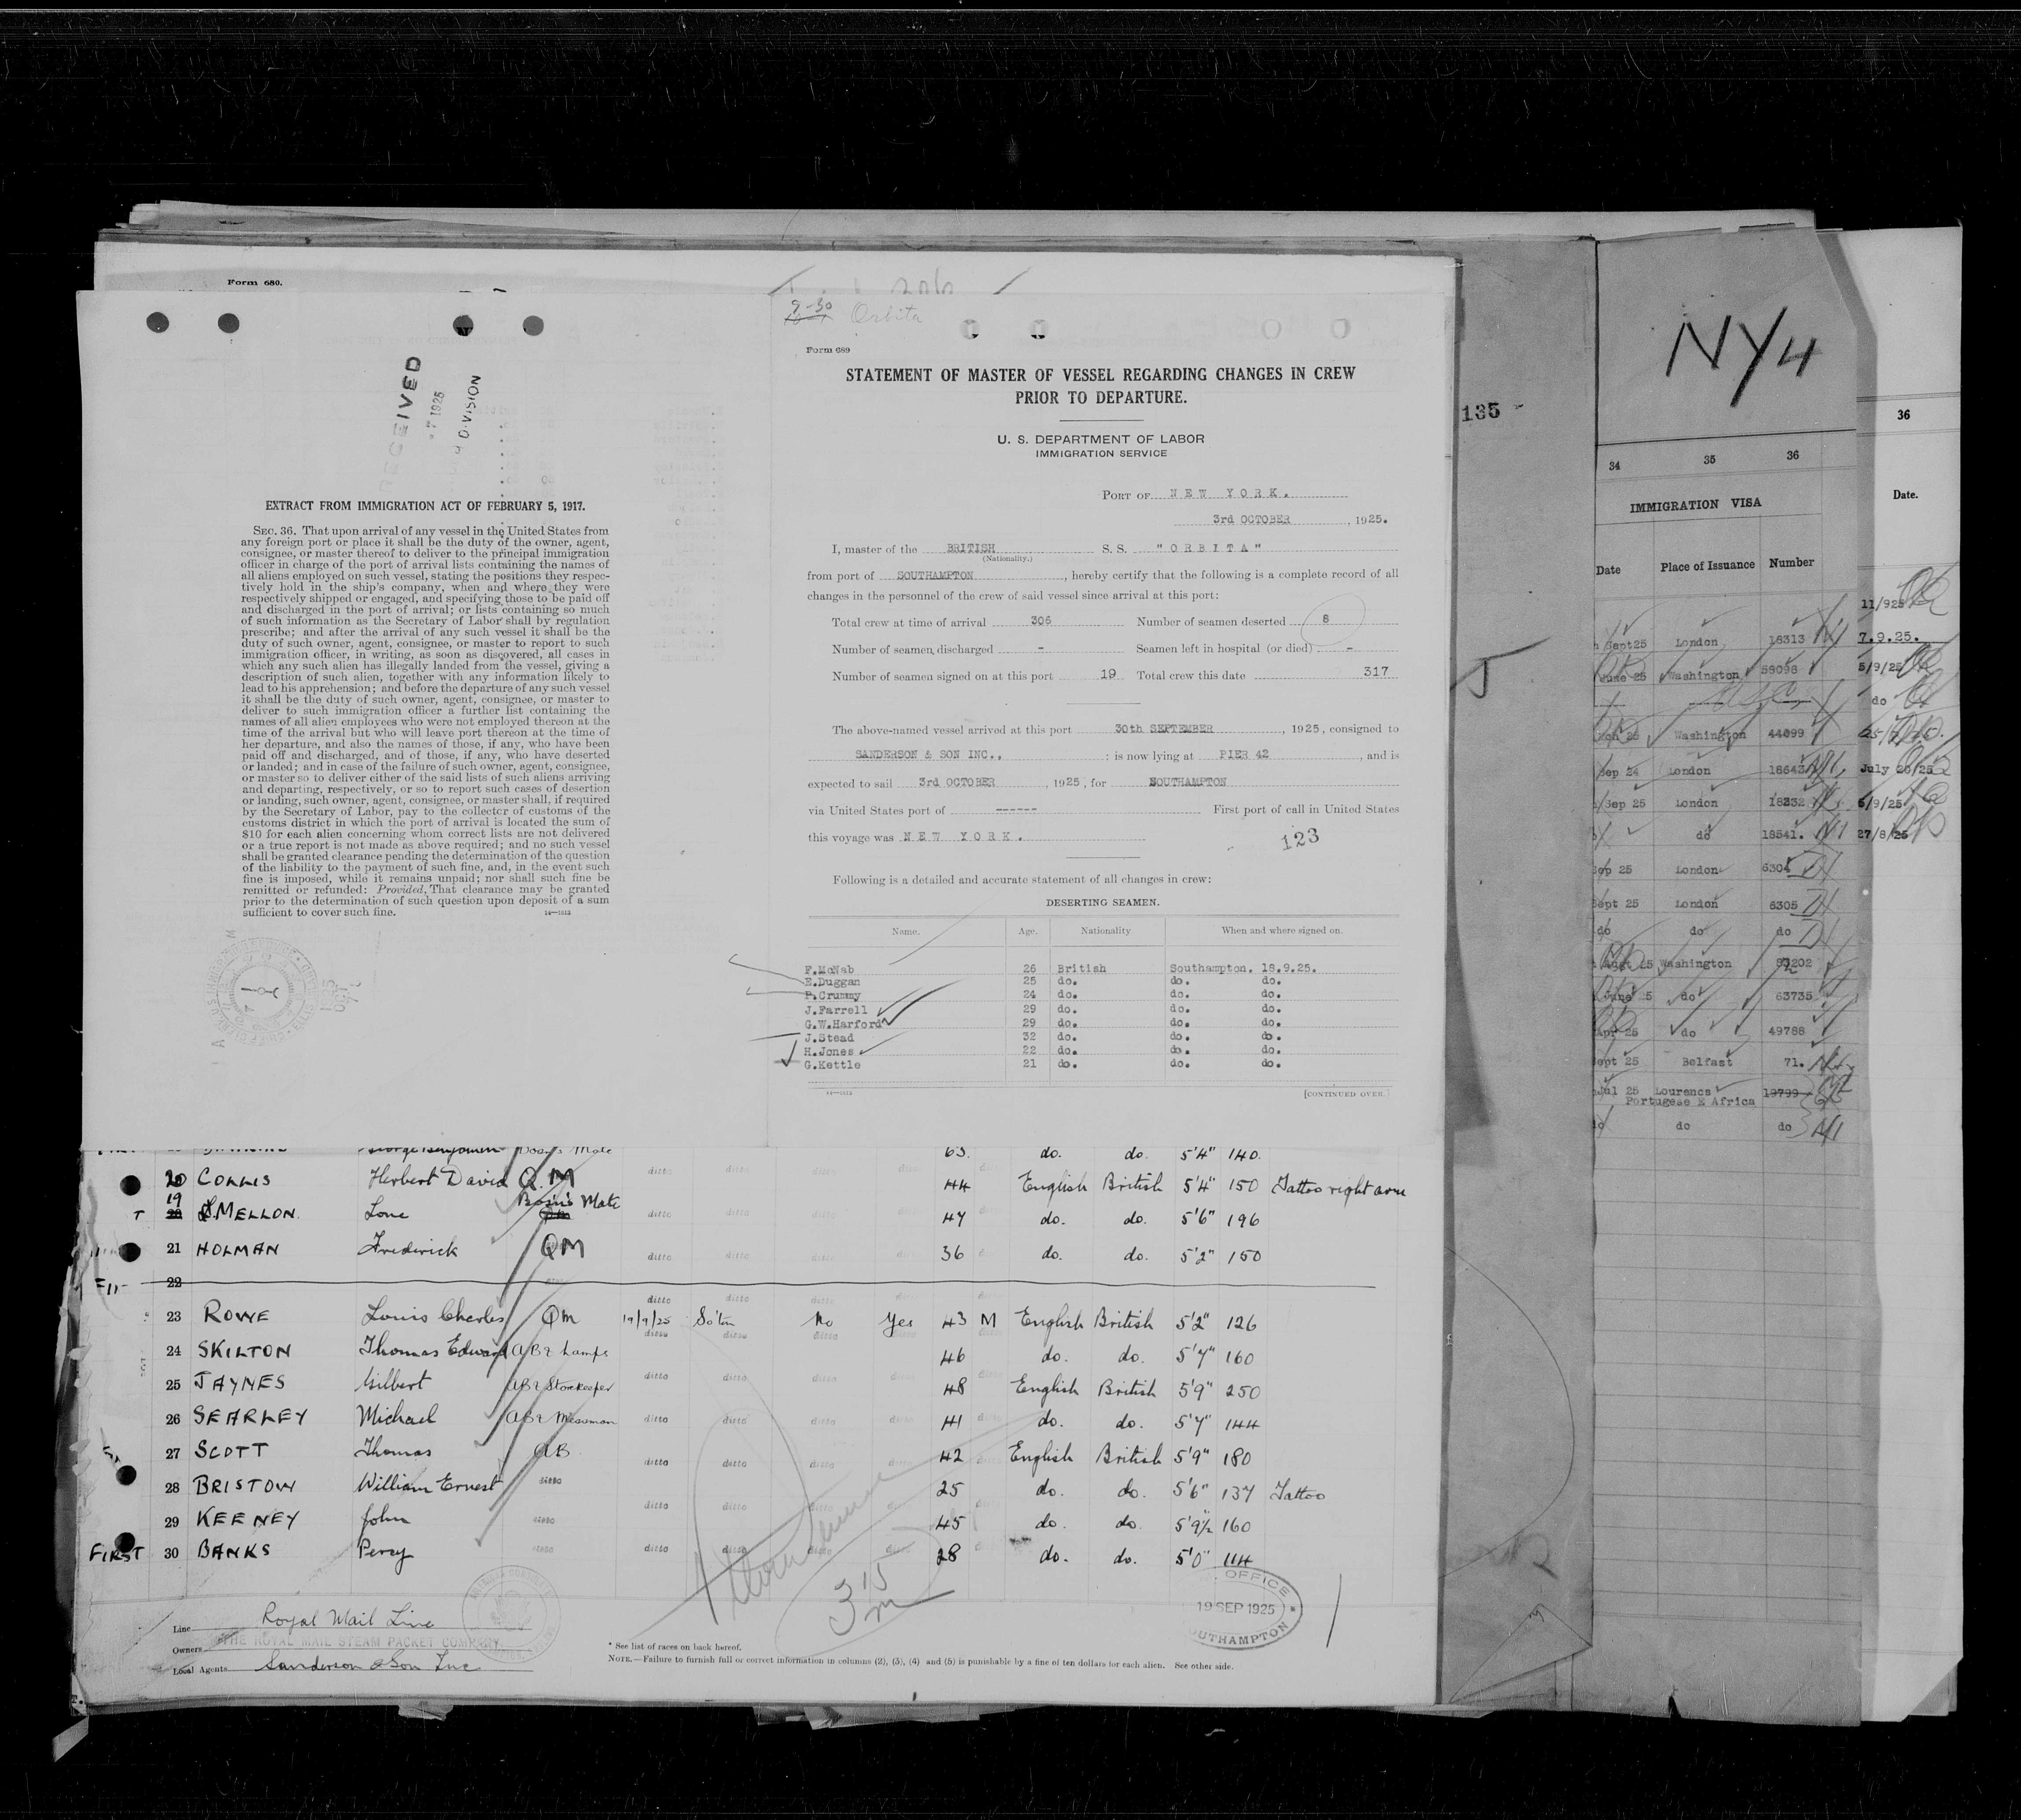 Form 680.
RECEIVED
7 1925
DIVISION
EXTRACT FROM IMMIGRATION ACT OF FEBRUARY 5, 1917.
SEC. 36. That upon arrival of any vessel in the United States from
any foreign port or place it shall be the duty of the owner, agent,
consignee, or master thereof to deliver to the principal immigration
officer in charge of the port of arrival lists containing the names of
all aliens employed on such vessel, stating the positions they respec-
tively hold in the ship's company, when and where they were
respectively shipped or engaged, and specifying those to be paid off
and discharged in the port of arrival; or lists containing so much
of such information as the Secretary of Labor shall by regulation
prescribe; and after the arrival of any such vessel it shall be the
duty of such owner, agent, consignee, or master to report to such
immigration officer, in writing, as soon as discovered, all cases in
which any such alien has illegally landed from the vessel, giving a
description of such alien, together with any information likely to
lead to his apprehension; and before the departure of any such vessel
it shall be the duty of such owner, agent, consignee, or master to
deliver to such immigration officer a further list containing the
names of all alien employees who were not employed thereon at the
time of the arrival but who will leave port thereon at the time of
her departure, and also the names of those, if any, who have been
paid off and discharged, and of those, if any, who have deserted
or landed; and in case of the failure of such owner, agent, consignee,
or master so to deliver either of the said lists of such aliens arriving
and departing, respectively, or so to report such cases of desertion
or landing, such owner, agent, consignee, or master shall, if required
by the Secretary of Labor, pay to the collector of customs of the
customs district in which the port of arrival is located the sum of
$10 for each alien concerning whom correct lists are not delivered
or a true report is not made as above required; and no such vessel
shall be granted clearance pending the determination of the question
of the liability to the payment of such fine, and, in the event such
fine is imposed, while it remains unpaid; nor shall such fine be
remitted or refunded: Provided, That clearance may be granted
prior to the determination of such question upon deposit of a sum
sufficient to cover such fine.
9-30 Orbita
Form 689
STATEMENT OF MASTER OF VESSEL REGARDING CHANGES IN CREW
PRIOR TO DEPARTURE.
U. S. DEPARTMENT OF LABOR
IMMIGRATION SERVICE
PORT OF NEW YORK.
3rd OCTOBER, 1925.
I, master of the BRITISH S. S. "ORBITA"
(Nationality.)
from port of SOUTHAMPTON, hereby certify that the following is a complete record of all
changes in the personnel of the crew of said vessel since arrival at this port:
Total crew at time of arrival 306 Number of seamen deserted 8
Number of seamen discharged - Seamen left in hospital (or died) -
Number of seamen signed on at this port 19 Total crew this date 317
The above-named vessel arrived at this port 30th SEPTEMBER, 1925, consigned to
SANDERSON & SON INC., ; is now lying at PIER 42, and is
expected to sail 3rd OCTOBER, 1925, for SOUTHAMPTON
via United States port of ------ First port of call in United States
this voyage was NEW YORK.
123
Following is a detailed and accurate statement of all changes in crew:
DESERTING SEAMEN.
Name. Age. Nationality When and where signed on.
F.McNab 26 British Southampton. 18.9.25.
E.Duggan 25 do. do. do.
P.Crummy 24 do. do. do.
J.Farrell 29 do. do. do.
G.W.Harford 29 do. do. do.
J.Stead 32 do. do. do.
H.Jones 22 do. do. do.
G.Kettle 21 do. do. do.
[CONTINUED OVER.]
135
NY4
34 35 36
IMMIGRATION VISA
Date Place of Issuance Number
Sept25 London 18313
June 25 Washington 59098
Washington 44099
Sep 24 London 18643
Sep 25 London 18232
do 18541.
Sep 25 London 6304
Sept 25 London 6305
do do do
Augt 25 Washington 83202
June 25 do 63735
Apr 25 do 49788
Sept 25 Belfast 71.
Jul 25 Lourencs 19799
Portugese E Africa
do do do
36
Date.
11/925
7.9.25.
5/9/25
do
July 20/25
5/9/25
27/8/25
George Benjamin Bosn's Mate 63. do. do. 5'4" 140.
20 COLLIS Herbert David Q.M ditto ditto ditto 44 English British 5'4" 150 Tattoo right arm
19 MELLON. Lone Bosn's Mate ditto ditto ditto 47 do. do. 5'6" 196
21 HOLMAN Frederick QM ditto ditto ditto 36 do. do. 5'2" 150
22
ditto ditto ditto
23 ROWE Louis Charles QM 19/9/25 So'ton No Yes 43 M English British 5'2" 126
24 SKILTON Thomas Edward AB & Lamps ditto ditto ditto 46 do. do. 5'7" 160
25 JAYNES Gilbert AB & Storekeeper ditto ditto 48 English British 5'9" 250
26 SEARLEY Michael AB & Messman ditto ditto ditto 41 do. do. 5'7" 144
27 SCOTT Thomas AB ditto ditto ditto 42 English British 5'9" 180
28 BRISTOW William Ernest ditto 25 do. do. 5'6" 137 Tattoo
29 KEENEY John ditto ditto ditto 45 do. do. 5'9½ 160
FIRST 30 BANKS Percy ditto ditto ditto 28 do. do. 5'0" 114
315
OFFICE
19 SEP 1925
SOUTHAMPTON
Line Royal Mail Line
Owners THE ROYAL MAIL STEAM PACKET COMPANY
Local Agents Sanderson & Son Inc
* See list of races on back hereof.
NOTE.—Failure to furnish full or correct information in columns (2), (3), (4) and (5) is punishable by a fine of ten dollars for each alien. See other side.